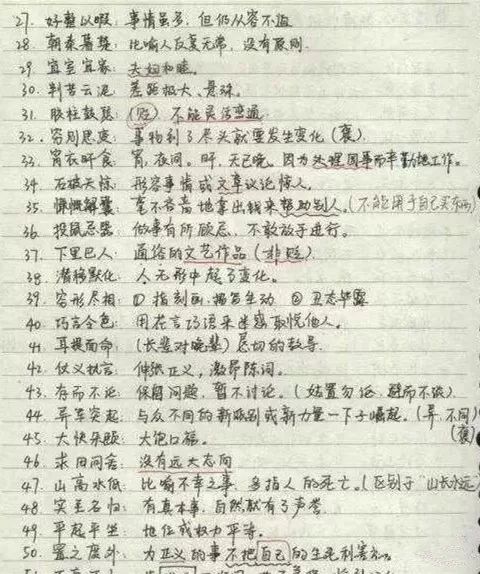 27. 好整以暇: 事情虽多, 但仍从容不迫
28. 朝秦暮楚: 比喻人反复无常, 没有原则.
29. 宜室宜家: 夫妇和睦。
30. 判若云泥: 差距极大、悬殊。
31. 胶柱鼓瑟: (贬) 不能灵活变通
32. 穷则思变: 事物到了尽头就要发生变化 (褒)
33. 宵衣旰食: 宵, 夜间。旰, 天已晚。因为处理国事而辛勤地工作。
34. 石破天惊: 形容事情或文章议论惊人。
35. 慷慨解囊: 毫不吝啬地拿出钱来帮助别人。(不能用于自己买东西)
36. 投鼠忌器: 做事有所顾忌, 不敢放手进行。
37. 下里巴人: 通俗的文艺作品 (非贬)
38. 潜移默化: 人无形中起了变化。
39. 穷形尽相: ① 指刻画, 描写生动 ② 丑态毕露
40. 巧言令色: 用花言巧语来迷惑取悦他人。
41. 耳提面命: (长辈对晚辈) 恳切的教导
42. 仗义执言: 伸张正义, 激昂陈词。
43. 存而不论: 保留问题, 暂不讨论。(姑置勿论, 避而不谈)
44. 异军突起: 与众不同的新派别或新力量一下子崛起。(异, 不同) (褒)
45. 大快朵颐: 大饱口福。
46. 求田问舍: 没有远大志向
47. 山高水低: 比喻不幸之事, 多指人的死亡。(区别于"山长水远")
48. 实至名归: 有真本事, 自然就有了声誉.
49. 平起平坐: 地位或权力平等。
50. 置之度外: 为正义的事不把自己的生死利害